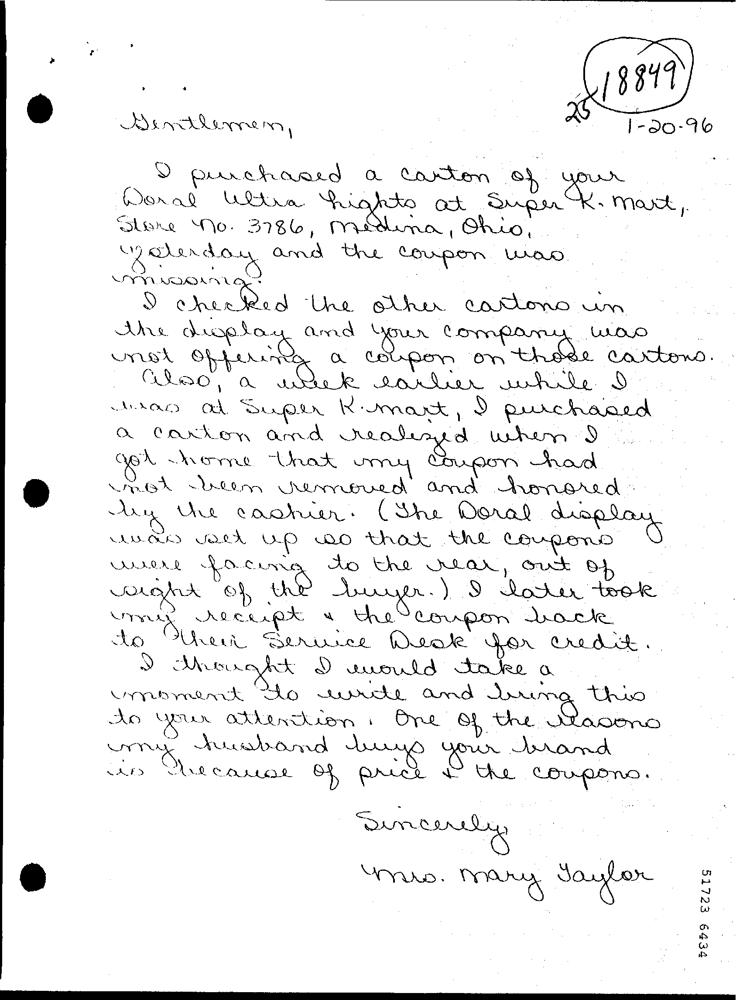 18849
25
1-20-96
Gentlemen,
I purchased a carton of your
Doral Ultra Lights at Super K-Mart,
Store No. 3786, Medina, Ohio,
yesterday and the coupon was
missing.
I checked the other cartons in
the display and your company was
not offering a coupon on those cartons.
Also, a week earlier while I
was at Super K-mart, I purchased
a carton and realized when I
got home that my coupon had
not been removed and honored
by the cashier. (The Doral display
was set up so that the coupons
were facing to the rear, out of
sight of the buyer.) I later took
my receipt & the coupon back
to their Service Desk for credit.
I thought I would take a
moment to write and bring this
to your attention. One of the reasons
my husband buys your brand
is because of price & the coupons.
Sincerely,
Mrs. Mary Taylor
51723 6434